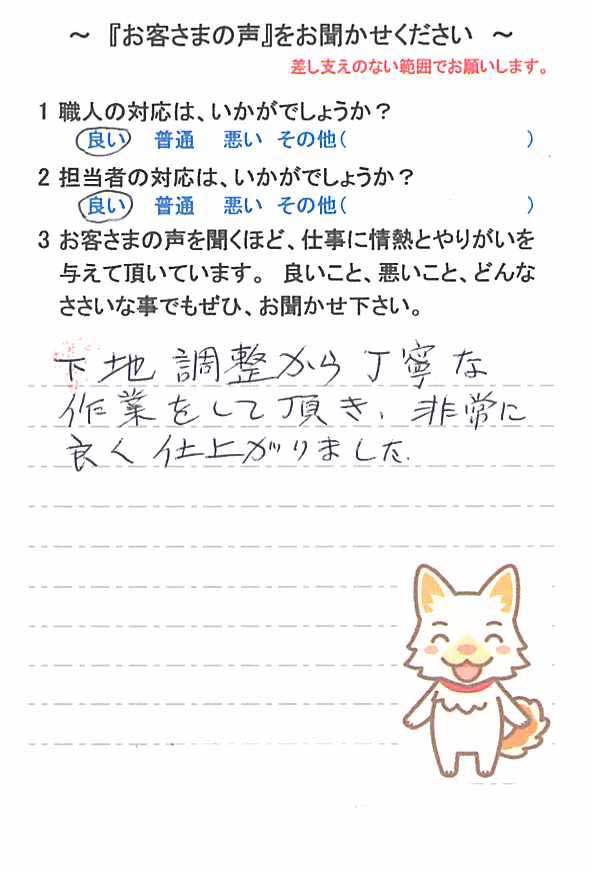 ～ 『お客さまの声』をお聞かせください ～
差し支えのない範囲でお願いします。
1 職人の対応は、いかがでしょうか？
良い 普通 悪い その他( )
2 担当者の対応は、いかがでしょうか？
良い 普通 悪い その他( )
3 お客さまの声を聞くほど、仕事に情熱とやりがいを
与えて頂いています。 良いこと、悪いこと、どんな
ささいな事でもぜひ、お聞かせ下さい。
下地調整から丁寧な
作業をして頂き、非常に
良く仕上がりました.